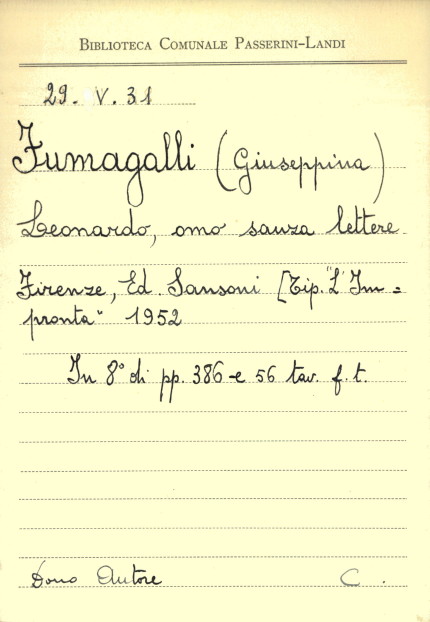 BIBLIOTECA COMUNALE PASSERINI-LANDI
29. V. 31
Fumagalli (Giuseppina)
Leonardo, omo sanza lettere
Firenze, Ed. Sansoni [Tip. "L'Im=
pronta" 1952
In 8° di pp. 386 e 56 tav. f. t.
Dono Autore C.